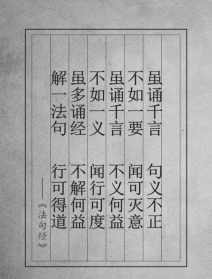 虽诵千言　句义不正
不如一要　闻可灭意
虽诵千言　不义何益
不如一义　闻行可度
虽多诵经　不解何益
解一法句　行可得道
—《法句经》